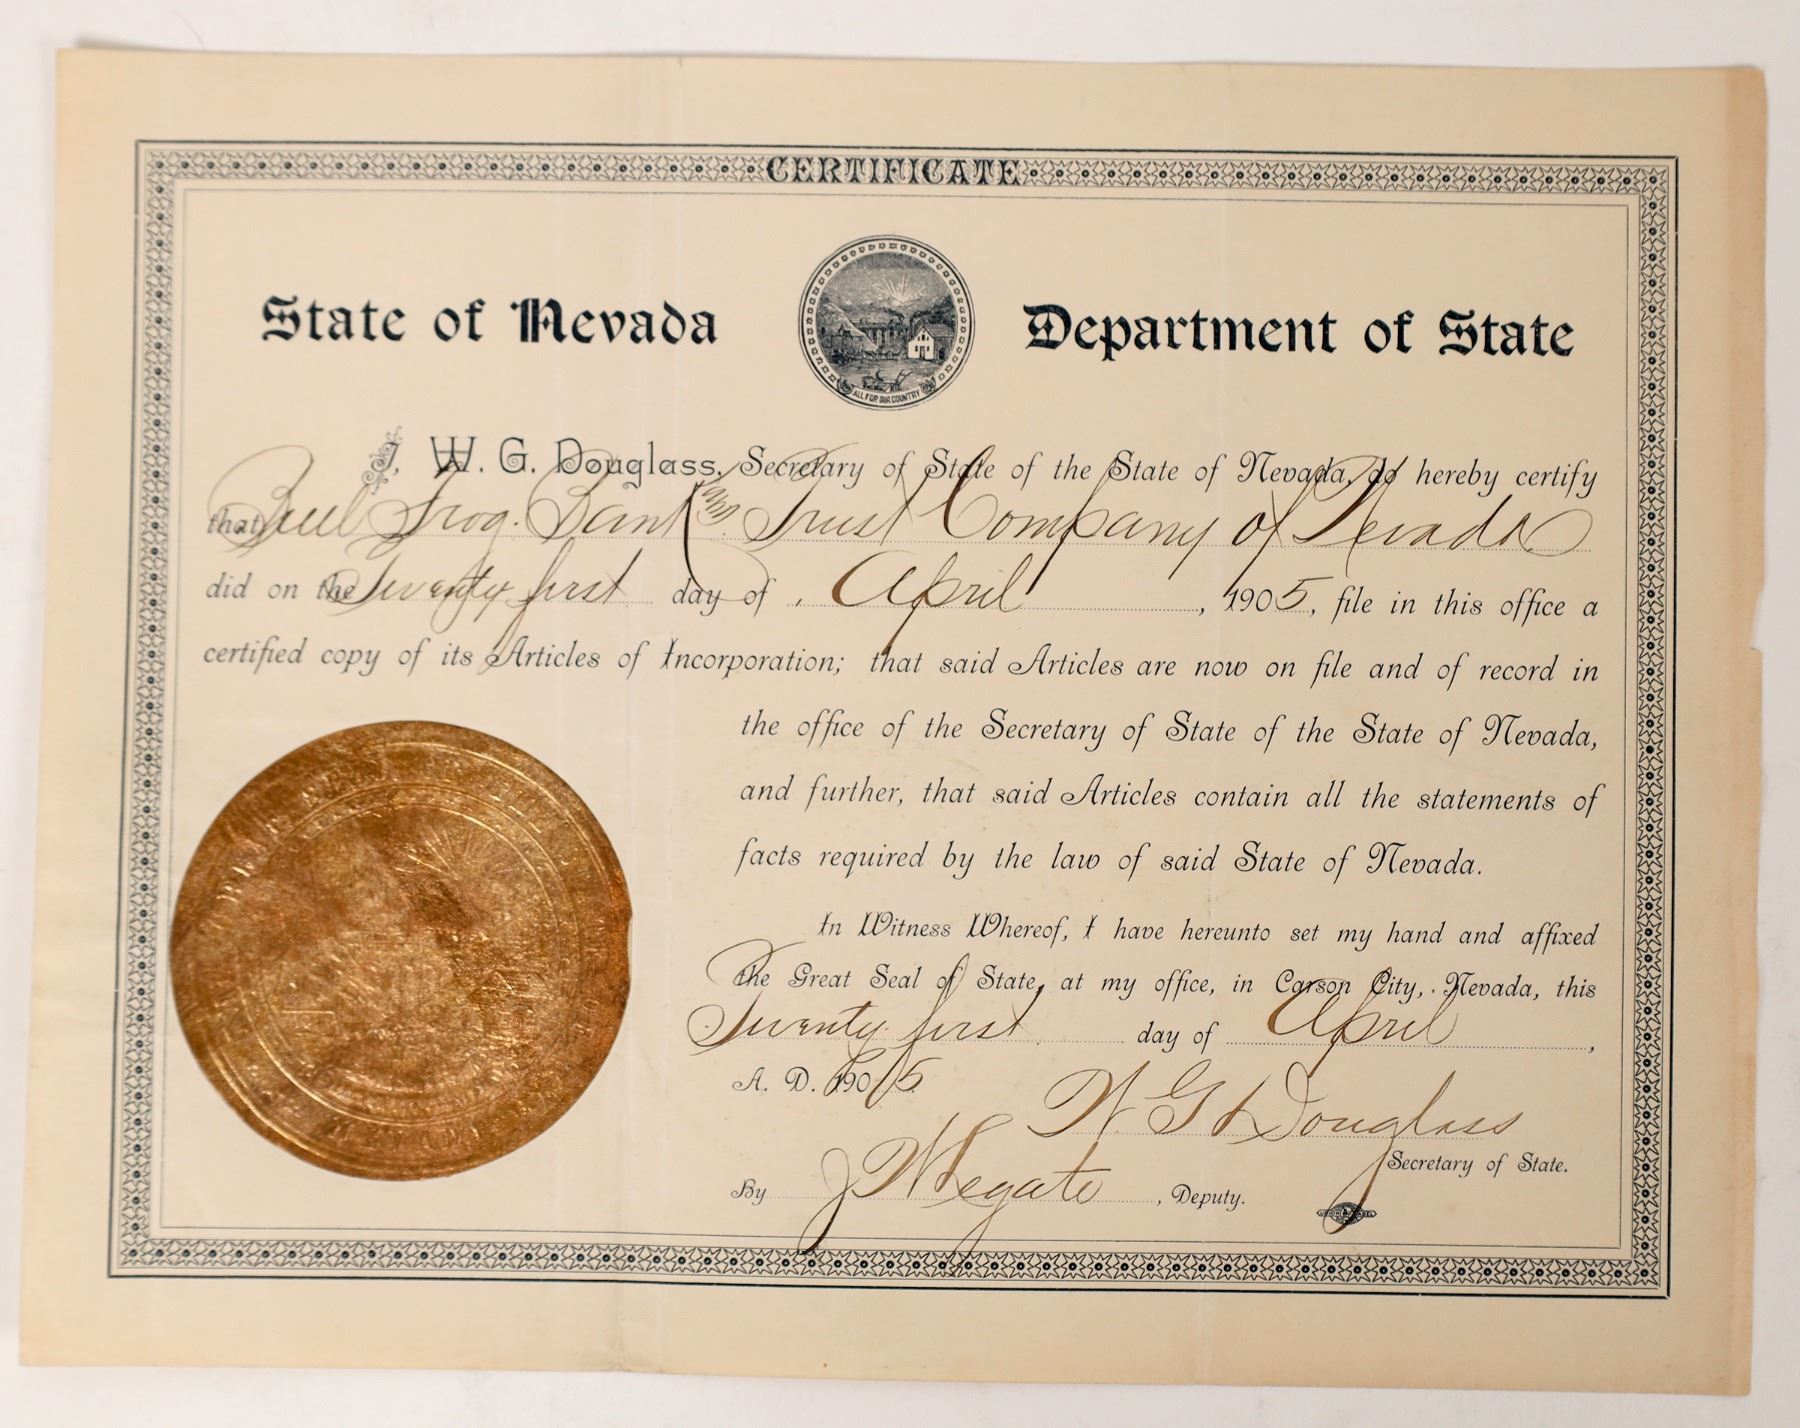 CERTIFICATE
State of Nevada
Department of State
ALL FOR OUR COUNTRY
I, W. G. Douglass, Secretary of State of the State of Nevada, do hereby certify
that Bull Frog Bank Trust Company of Nevada
did on the Twenty first day of April, 1905, file in this office a
certified copy of its Articles of Incorporation; that said Articles are now on file and of record in
the office of the Secretary of State of the State of Nevada,
and further, that said Articles contain all the statements of
facts required by the law of said State of Nevada.
In Witness Whereof, I have hereunto set my hand and affixed
the Great Seal of State, at my office, in Carson City, Nevada, this
Twenty first day of April,
A. D. 1905.
W. G. Douglass
Secretary of State.
By J W Legate, Deputy.